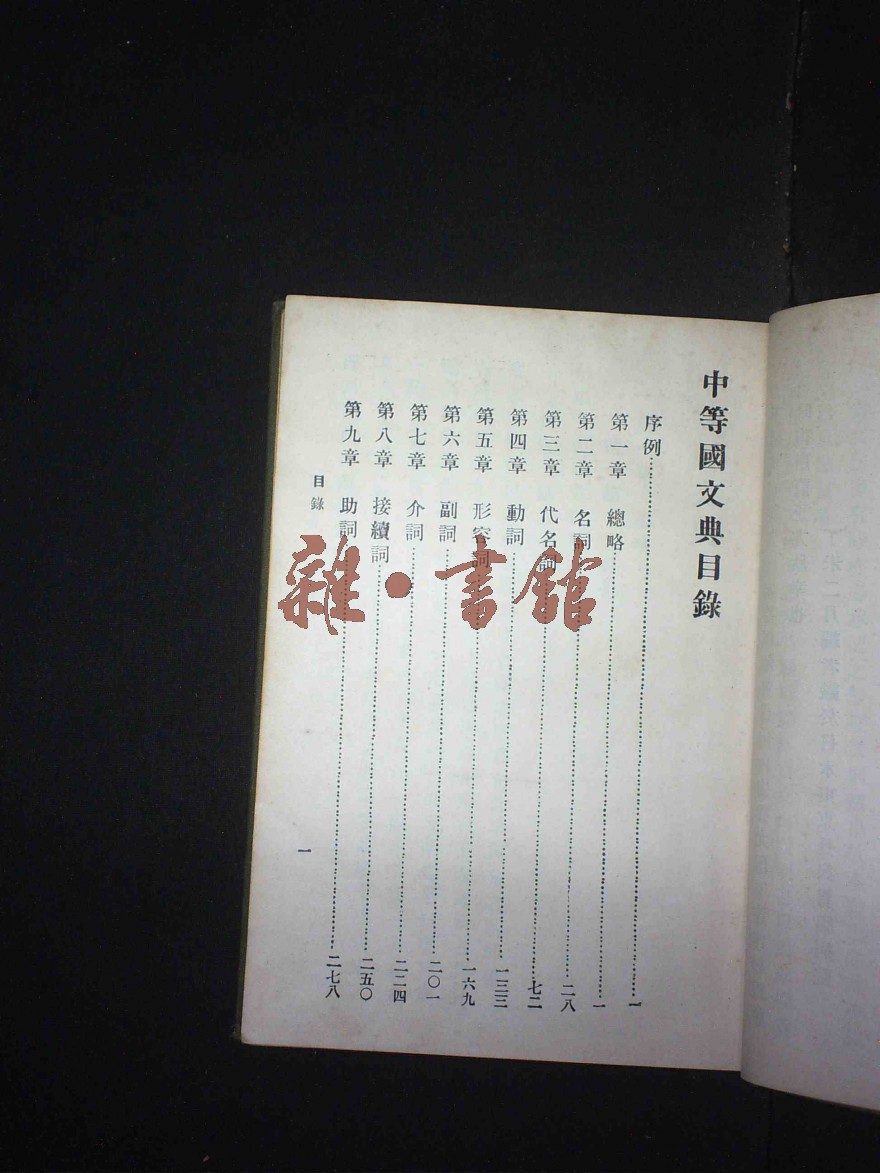 中等國文典目錄
序例……一
第一章 總略……一
第二章 名詞……二八
第三章 代名詞……七二
第四章 動詞……一三三
第五章 形容詞……一六九
第六章 副詞……二〇一
第七章 介詞……二二四
第八章 接續詞……二五〇
第九章 助詞……二七八
目錄
一
雜·書館